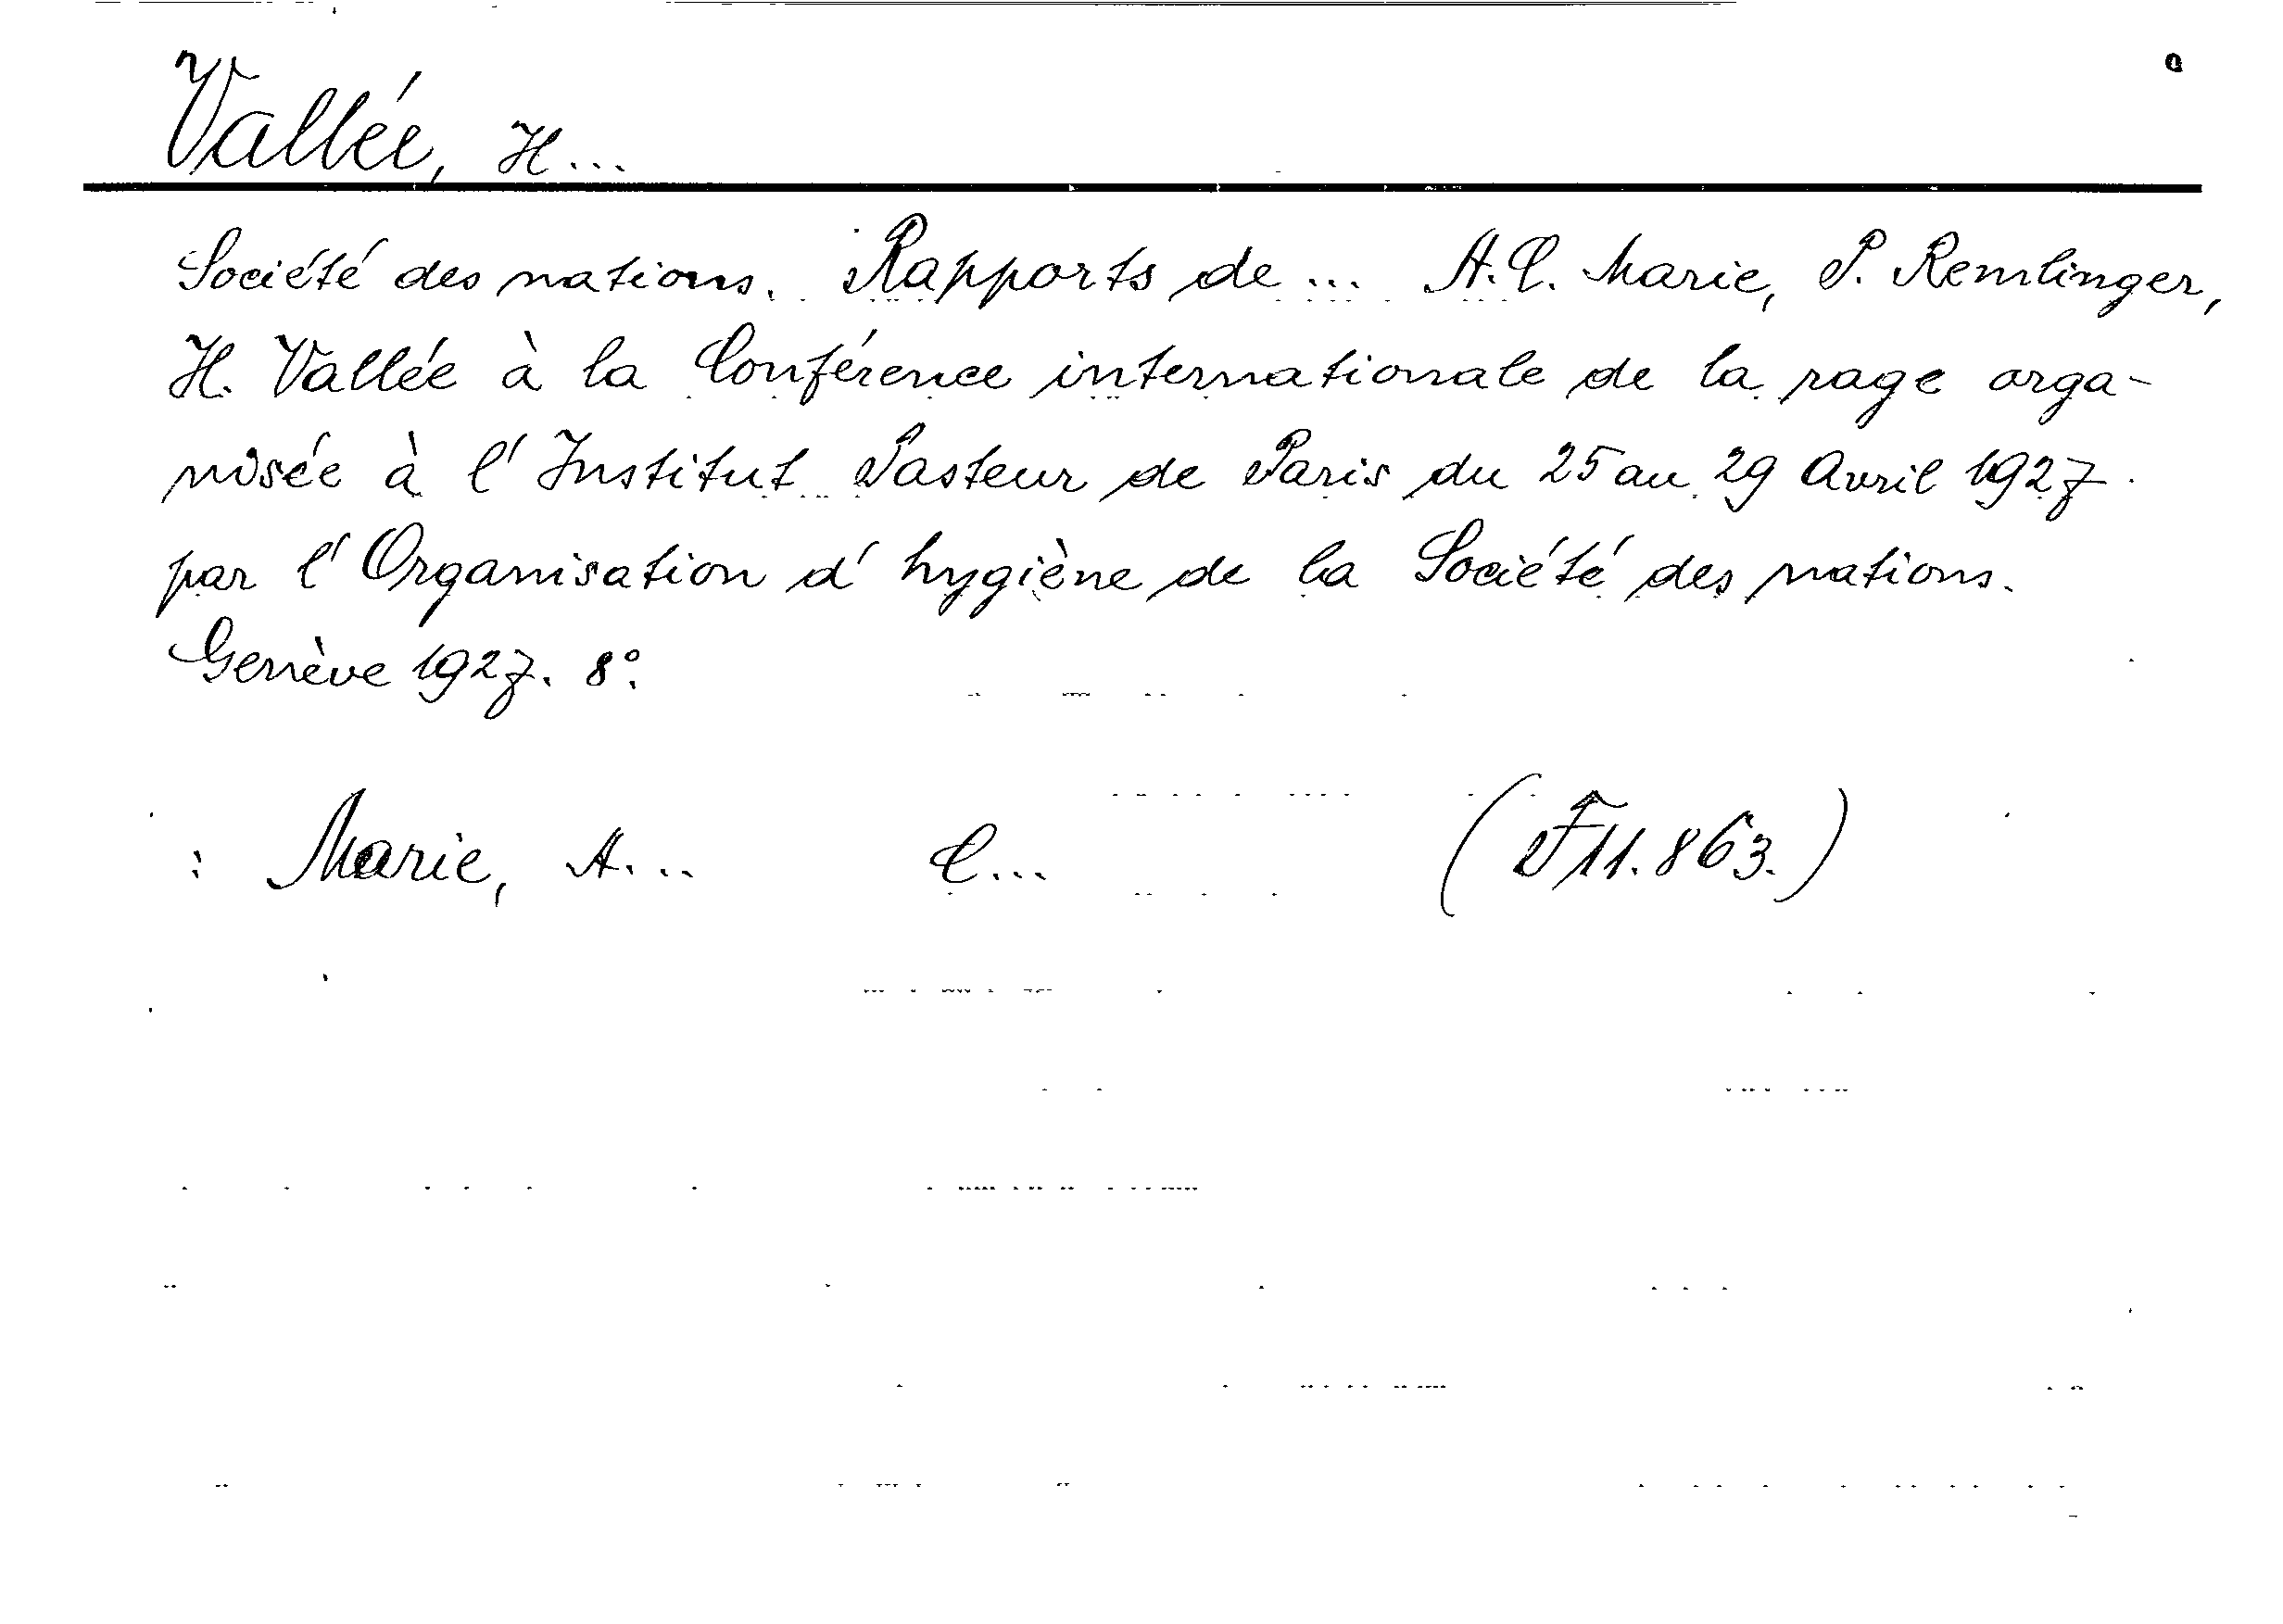 Vallée, H...
Société des nations. Rapports de ... A.C. Marie, P. Remlinger,
H. Vallée à la Conférence internationale de la rage orga-
nisée à l'Institut Pasteur de Paris du 25 au 29 Avril 1927
par l'Organisation d'hygiène de la Société des nations.
Genève 1927. 8°.
: Marie, A... C... (F11.863.)